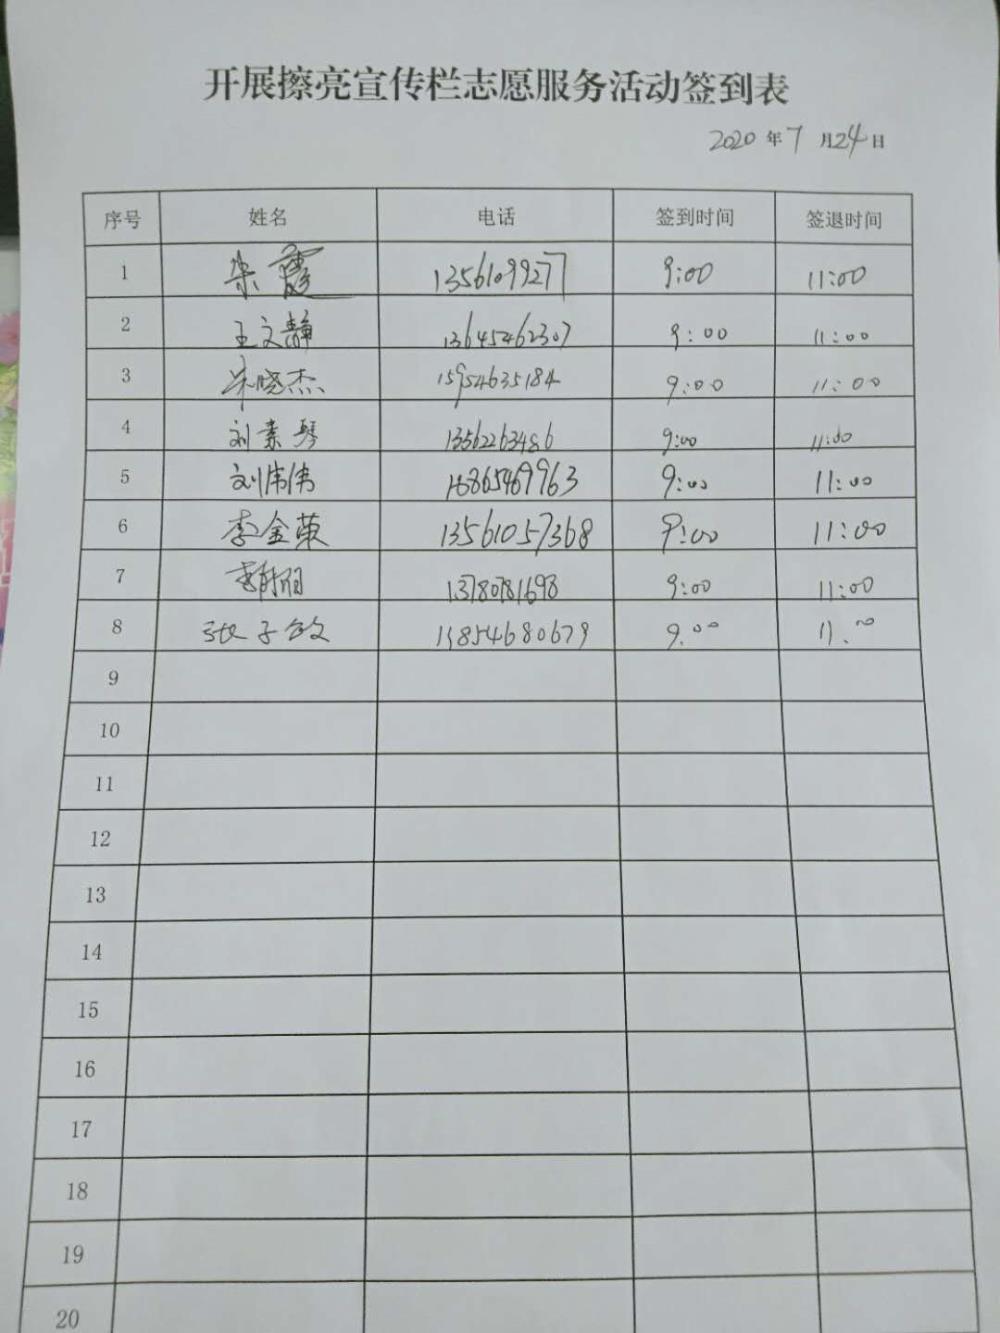 开展擦亮宣传栏志愿服务活动签到表
2020年7月24日
序号 姓名 电话 签到时间 签退时间
1 栾霞 13561099277 9:00 11:00
2 王文静 13645462307 9:00 11:00
3 宋晓杰 15954635184 9:00 11:00
4 刘素琴 13562263486 9:00 11:00
5 刘伟伟 18865469963 9:00 11:00
6 李金荣 13561057368 9:00 11:00
7 13780781693 9:00 11:00
8 张子敏 13854680679 9:00 11:00
9
10
11
12
13
14
15
16
17
18
19
20